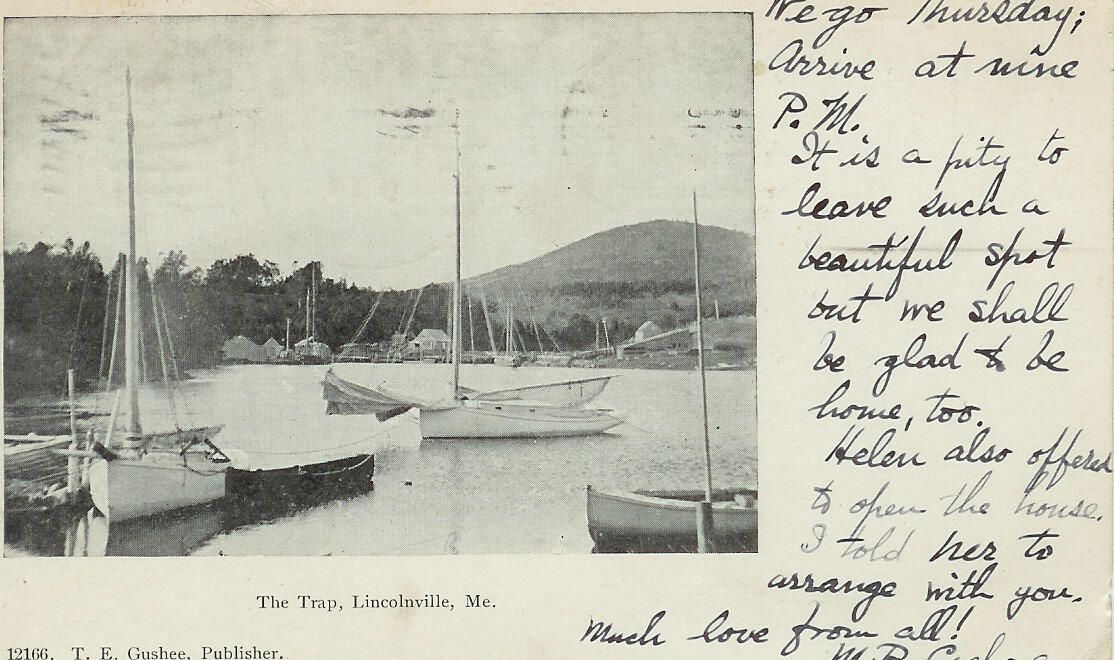 We go Thursday;
Arrive at nine
P. M.
It is a pity to
leave such a
beautiful spot
but we shall
be glad to be
home, too.
Helen also offered
to open the house.
I told her to
arrange with you.
Much love from all!
M. P.
The Trap, Lincolnville, Me.
12166. T. E. Gushee, Publisher.